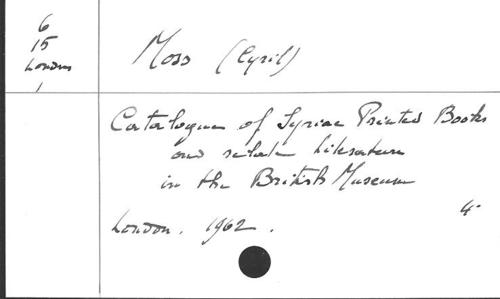 6
15
London
1
Moss (Cyril)
Catalogue of Syriac Printed Books
and related literature
in the British Museum
4°
London. 1962.